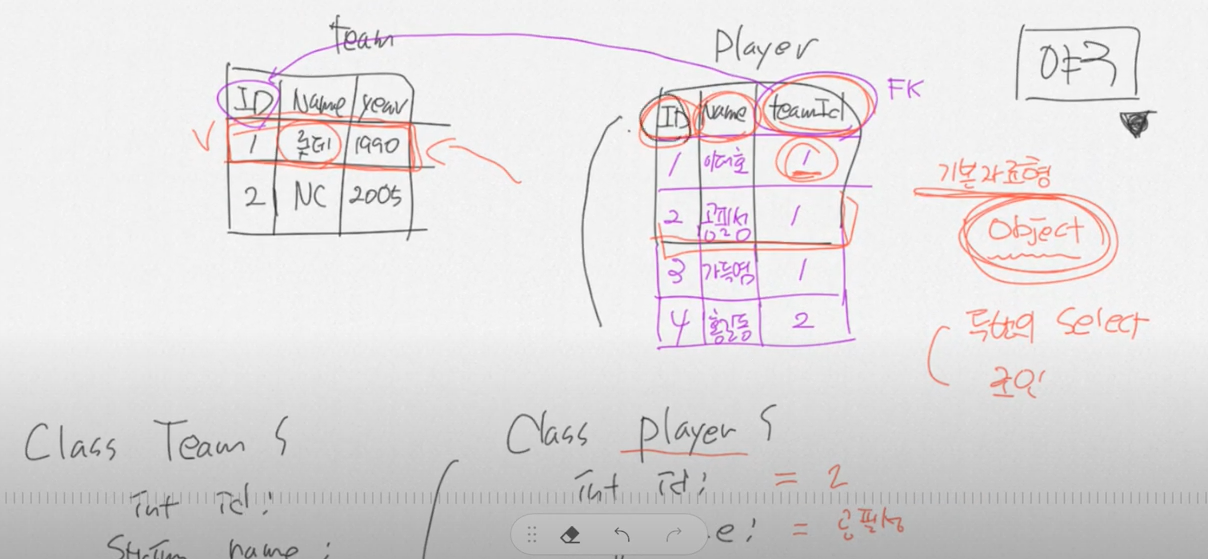 team
ID Name year
1 롯데 1990
2 NC 2005
Player
ID Name teamId
FK
1 이대호 1
2 공필성 1
3 가득염 1
4 홍길동 2
야구
기본자료형
Object
두번의 Select
조인
Class Team {
int id;
name;
Class player {
int id; = 2
e; = 공필성